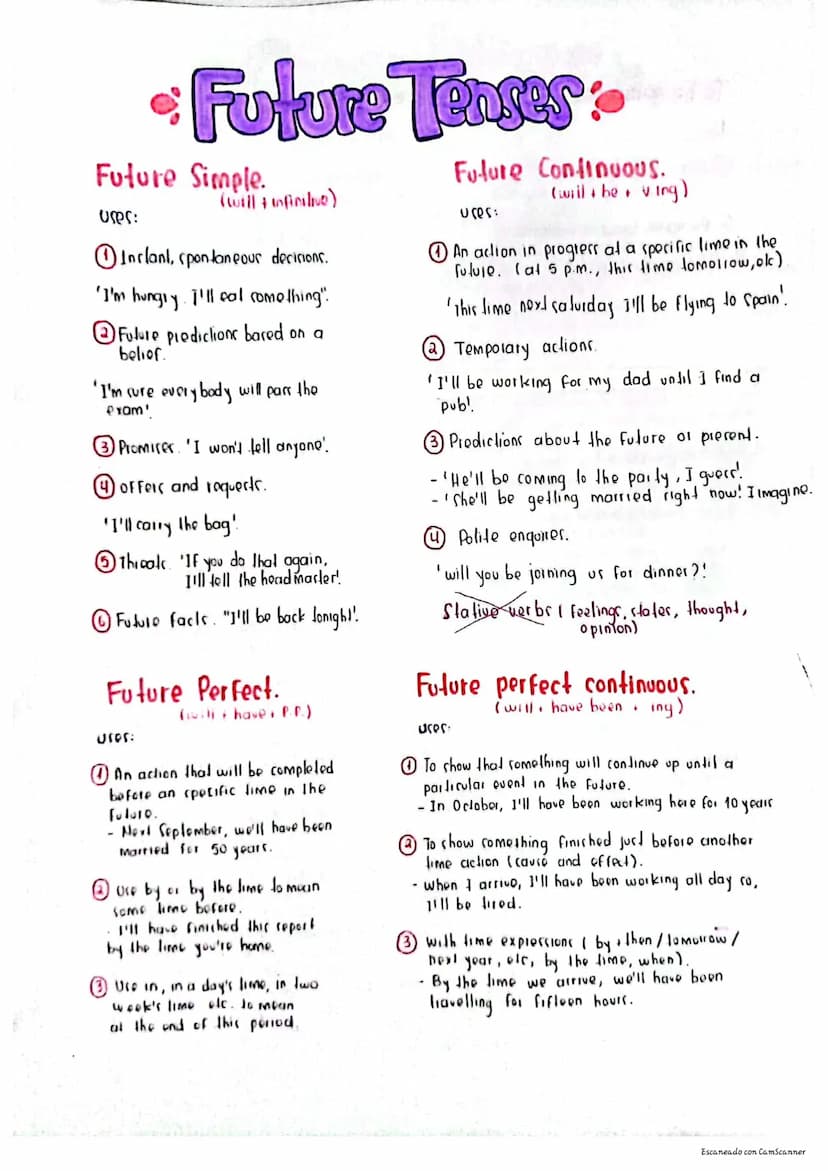 Future Tenses
Future Simple.
(will + infinitive)
uses:
① Instant, spontaneous decisions.
'I'm hungry. I'll eat something".
② Future predictions based on a
belief.
'I'm sure everybody will pass the
exam'.
③ Promises. 'I won't tell anyone'.
④ offers and requests.
'I'll carry the bag'.
⑤ Threats. 'If you do that again,
I'll tell the headmaster'.
⑥ Future facts. "I'll be back tonight'.
Future Continuous.
(will + be + v ing)
uses:
① An action in progress at a specific time in the
future. (at 5 p.m., this time tomorrow, etc)
'this time next saturday I'll be flying to Spain'.
② Temporary actions.
'I'll be working for my dad until I find a
pub'.
③ Predictions about the future or present.
- 'He'll be coming to the party, I guess'.
- 'She'll be getting married right now! I imagine.
④ Polite enquires.
'will you be joining us for dinner?'
Stative verbs (feelings, states, thought,
opinion)
Future Perfect.
(will + have + P.P.)
uses:
① An action that will be completed
before an specific time in the
future.
- Next September, we'll have been
married for 50 years.
② Use by or by the time to mean
some time before.
. I'll have finished this report
by the time you're home.
③ Use in, in a day's time, in two
week's time etc. to mean
at the end of this period.
Future perfect continuous.
(will + have been + ing)
uses:
① To show that something will continue up until a
particular event in the future.
- In October, I'll have been working here for 10 years
② To show something finished just before another
time action (cause and effect).
- when I arrive, I'll have been working all day so,
I'll be tired.
③ with time expressions ( by + then / tomorrow /
next year, etc, by the time, when).
- By the time we arrive, we'll have been
travelling for fifteen hours.
Escaneado con CamScanner